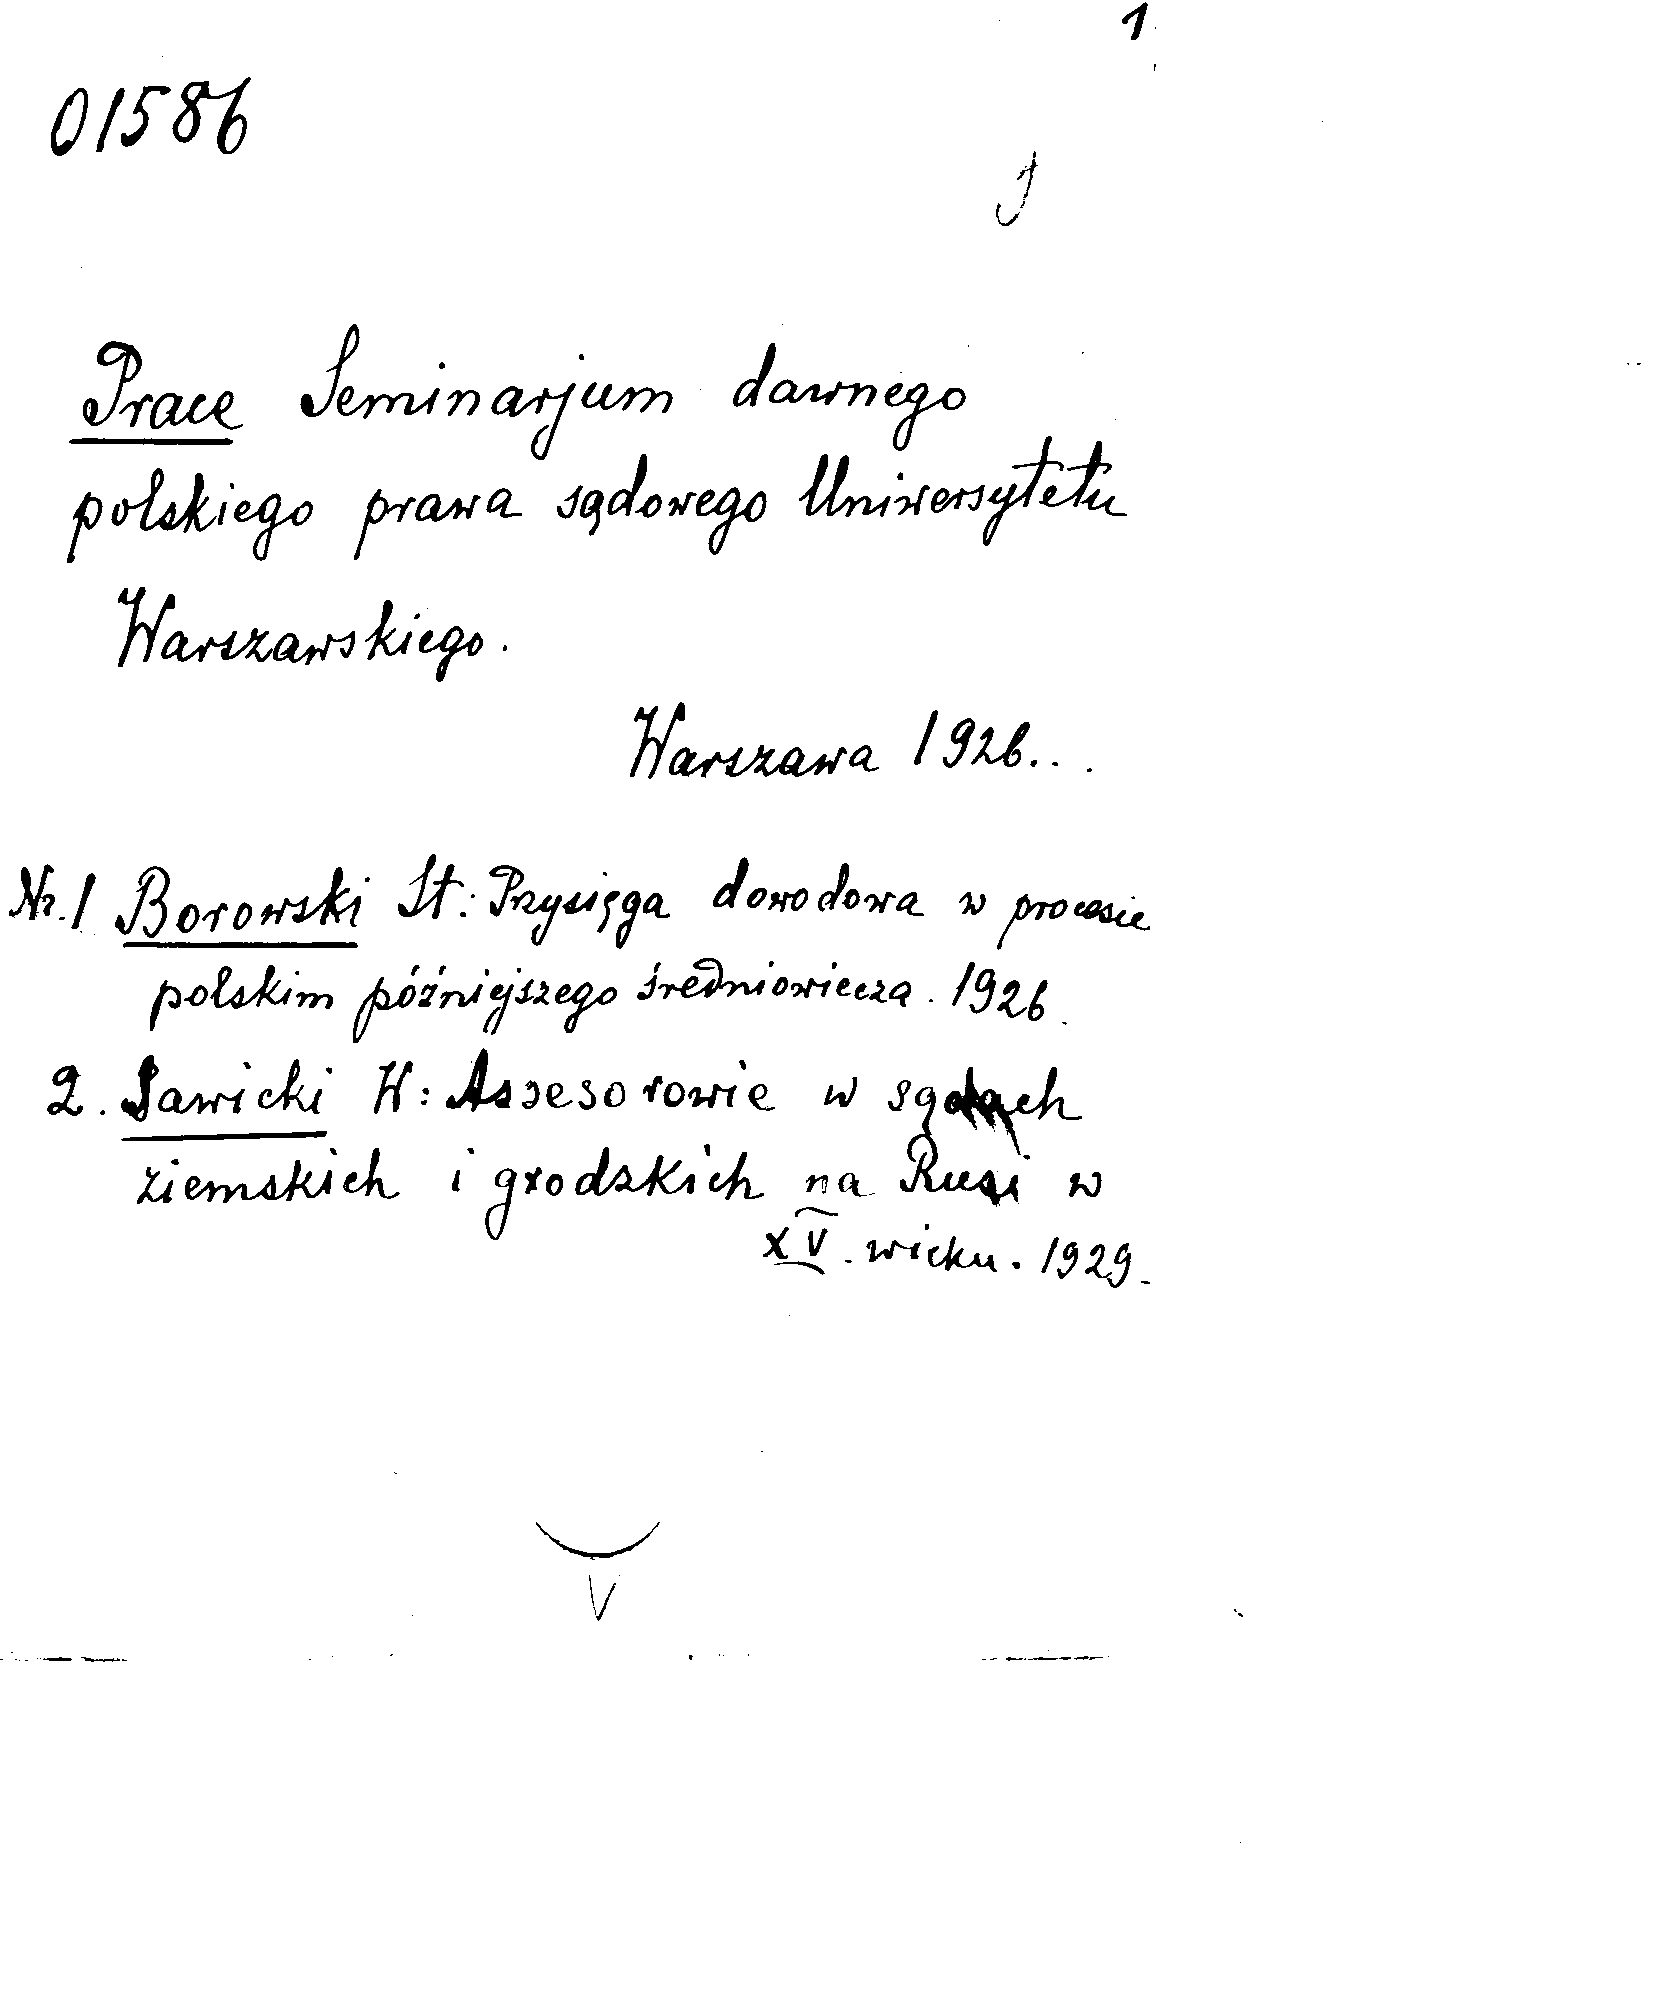 1
01586
Prace Seminarjum dawnego
polskiego prawa sądowego Uniwersytetu
Warszawskiego.
Warszawa 1926...
Nr. 1 Borowski St: Przysięga dowodowa w procesie
polskim późniejszego średniowiecza. 1926.
2. Sawicki W: Assesorowie w sądach
ziemskich i grodzkich na Rusi w
XV. wieku. 1929.
V